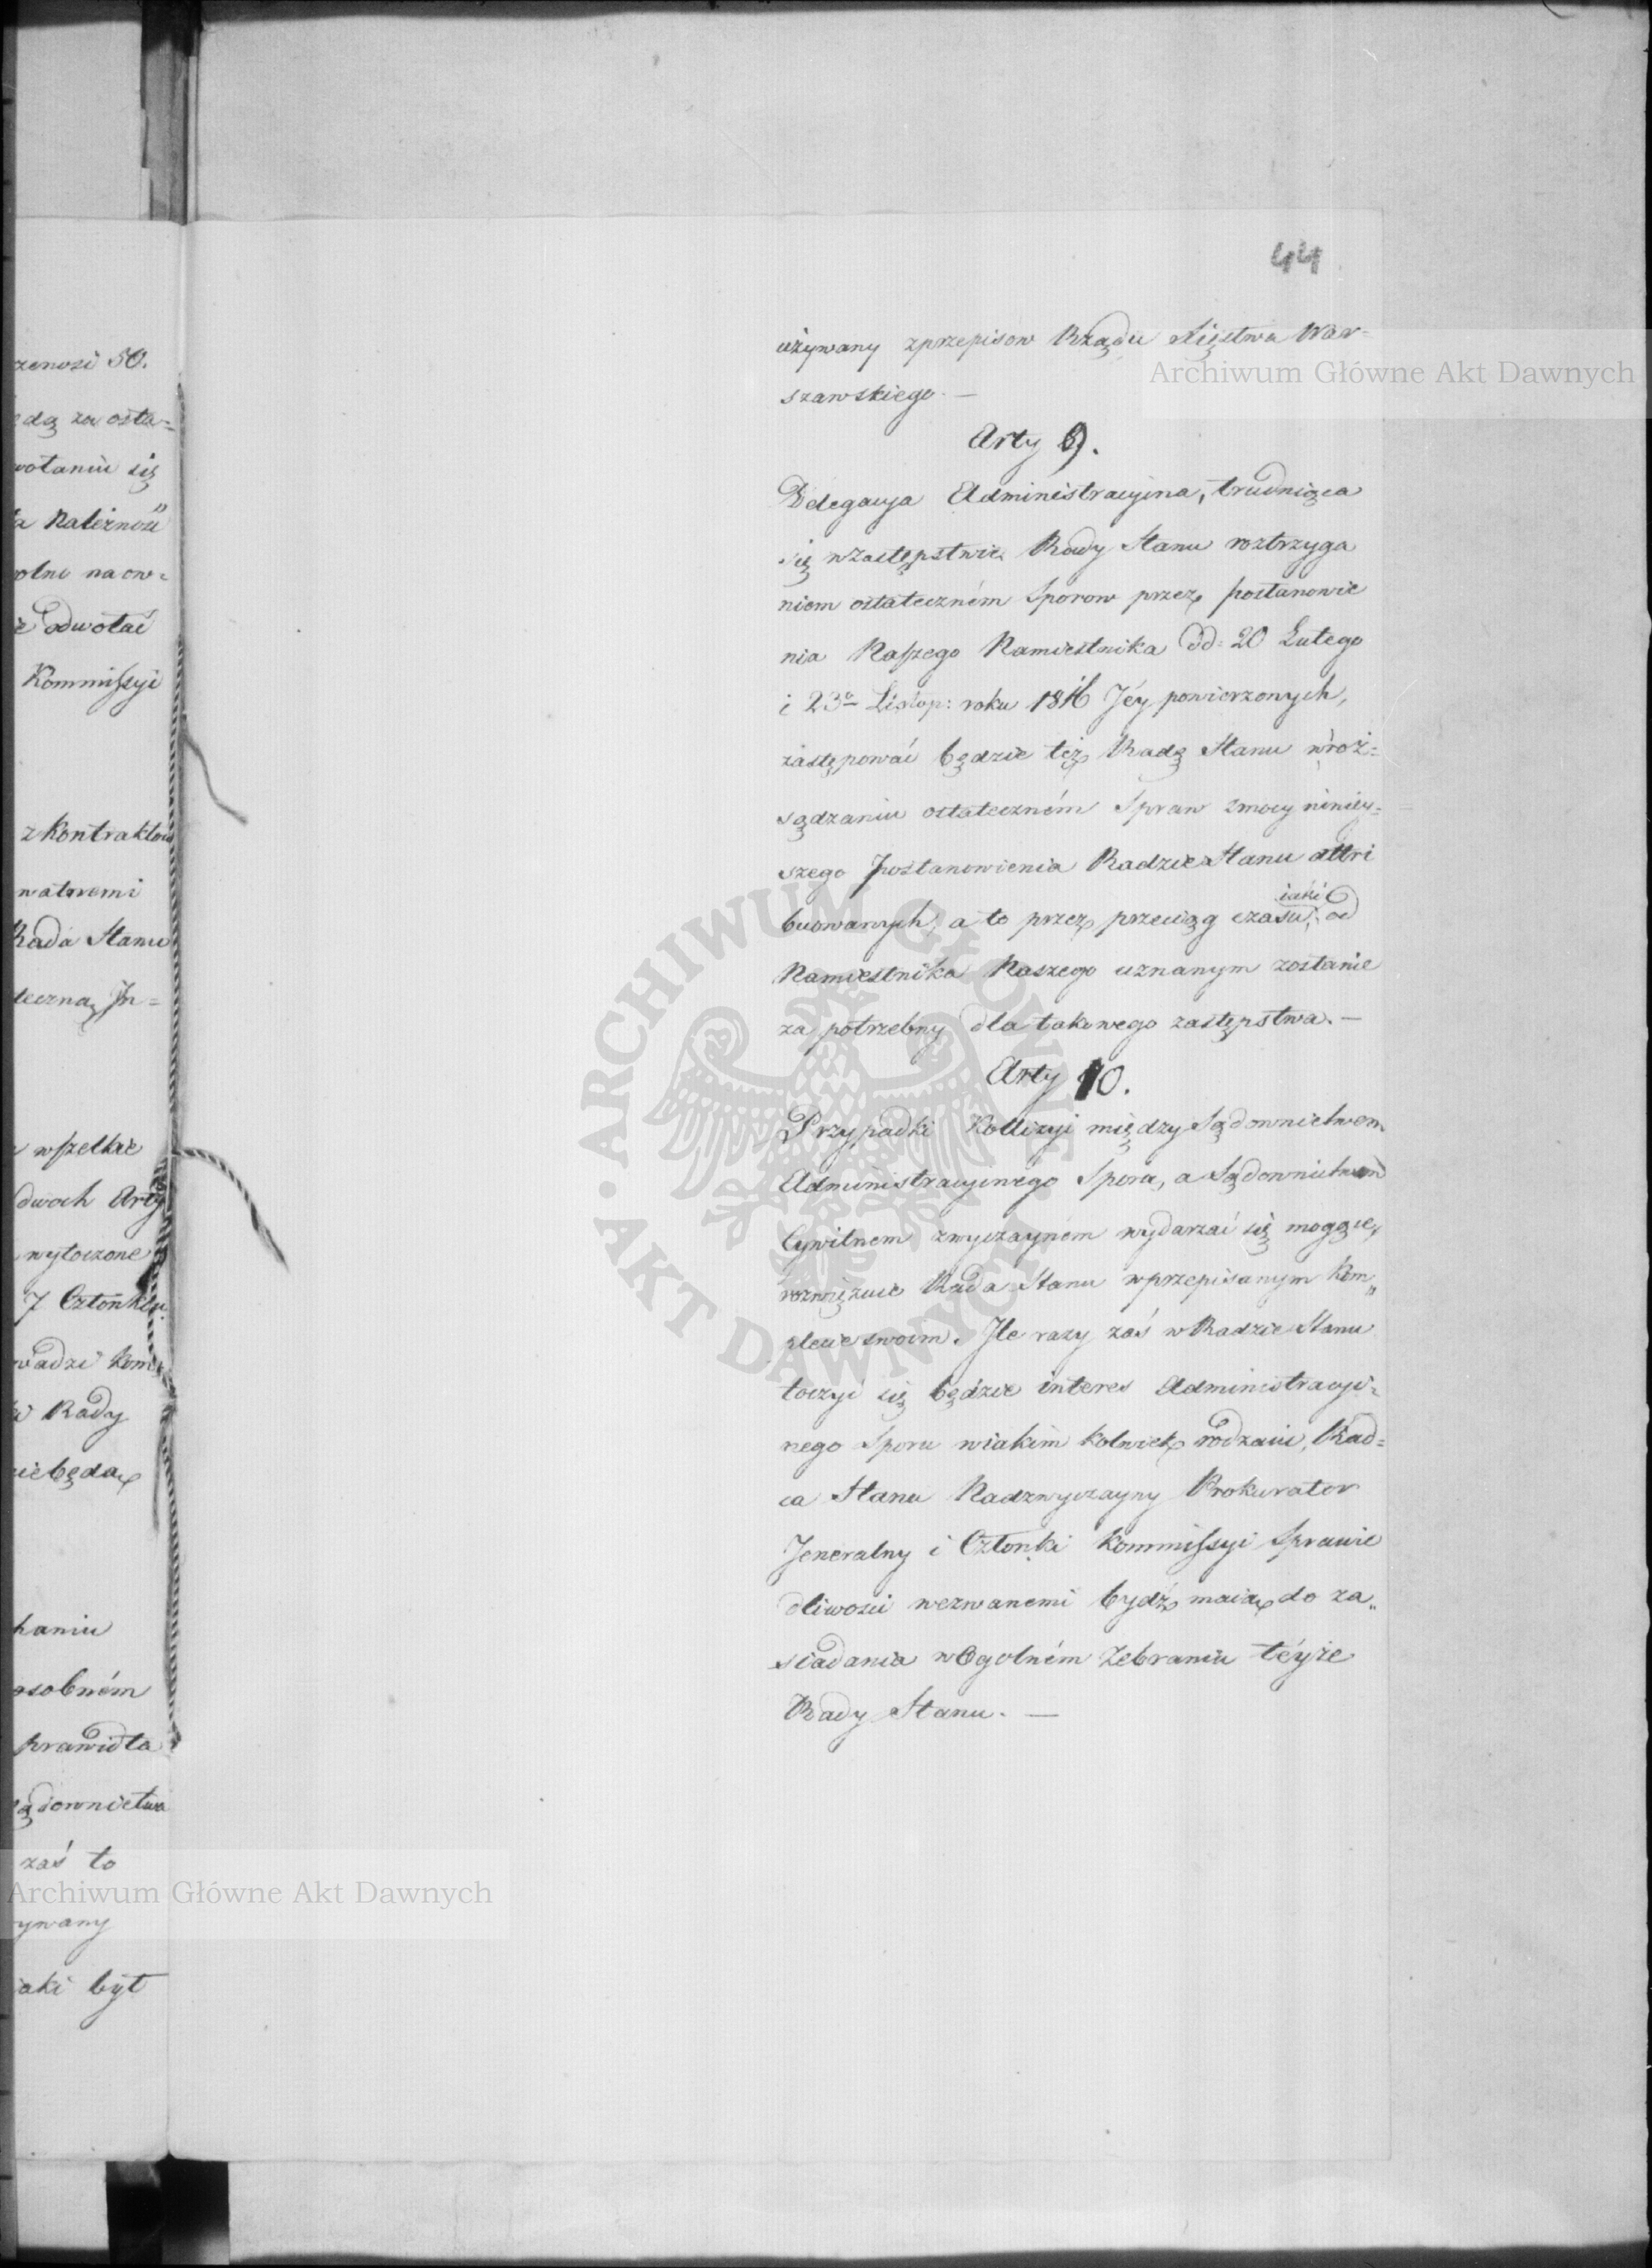 44
używany zprzepisow Rządu Xięstwa War-
szawskiego. —
Arty 9.
Delegacya Administracyina, trudniąca
się wzastępstwie Rady Stanu roztrzyga
niem ostateczném Sporow przez postanowie
nia Naszego Namiestnika dd: 20 Lutego
i 23º Listop: roku 1816 Jéy powierzonych,
zastępować będzie też Radę Stanu wroz-
sądzaniu ostateczném Spraw zmocy niniey-
szego postanowienia Radzie Stanu attri
buowanych, a to przez przeciąg czasu, iaki od
Namiestnika Naszego uznanym zostanie
za potrzebny dla takowego zastępstwa. —
Arty 10.
Przypadki Kollizyi między Sądownictwem
Administracyinego Sporu, a Sądownictwem
Cywilnem zwyczaynem wydarzać się mogące,
rozwiązuie Rada Stanu wprzepisanym kom„
plecie swoim. Ile razy zaś w Radzie Stanu
toczyć się będzie interes Administracyi-
nego Sporu wiakim kolwiek rodzaiu, Rad-
ca Stanu Nadzwyczayny Prokurator
Jeneralny i Członki Kommissyi Sprawie
dliwości wezwanemi bydź maią do za„
siadania wOgolném Zebraniu téyże
Rady Stanu. —
zeności 50.
edą za osta-
wołaniu się
ta Należność
wolni na ow-
ie odwołać
Kommissyi
z kontraktow
watnemi
Rada Stanu
teczną In-
wszelkie
dwoch Arty
wytoczone
7 Członków
wadzi kom
w Rady
niebędą
haniu
osobném
prawidła
Sądownictwa
zaś to
ywany
iaki był
Archiwum Główne Akt Dawnych
Archiwum Główne Akt Dawnych
ARCHIWUM GŁÓWNE AKT DAWNYCH